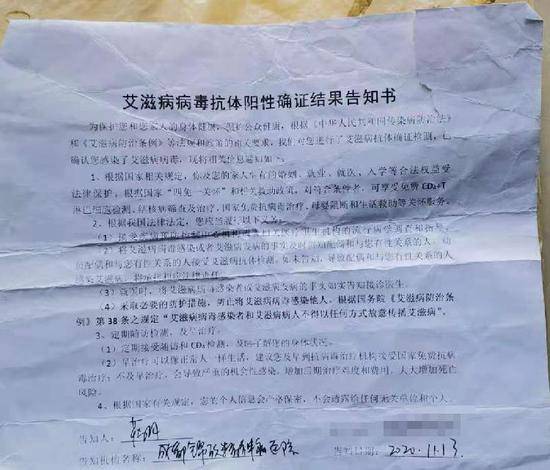 艾滋病病毒抗体阳性确证结果告知书
为保护您和您家人的身体健康，维护公众健康，根据《中华人民共和国传染病防治法》
和《艾滋病防治条例》等法规和政策的相关要求，我们对您进行了艾滋病抗体确证检测，已
确认您感染了艾滋病病毒，现将相关信息通知如下。
1、根据国家相关规定，你及您的家人享有的婚姻、就业、就医、入学等合法权益受
法律保护，根据国家“四免一关怀”和相关救助政策，对符合条件者，可享受免费 CD₄+T
淋巴细胞检测、结核病筛查及治疗、国家免费抗病毒治疗、母婴阻断和生活救助等关怀服务。
2、根据我国法律法定，您应当履行以下义务：
(2) 将艾滋病病毒感染或者艾滋病发病的事实及时告知配偶和与您有性关系的人，动
员配偶和与您有性关系的人接受艾滋病抗体检测，如未告知，导致配偶和与您有性关系的人
感染艾滋病，将承担相应法律责任
(3) 就医时，将艾滋病病毒感染或者艾滋病发病的事实如实告知接诊医生。
(4) 采取必要的防护措施，防止将艾滋病病毒感染他人，根据国务院《艾滋病防治条
例》第 38 条之规定“艾滋病病毒感染者和艾滋病人不得以任何方式故意传播艾滋病”。
3、定期随访检测，及早治疗。
(1) 定期接受随访和 CD₄ 检测，及时了解您的身体状况。
(2) 早治疗可以像正常人一样生活，建议您及早到抗病毒治疗机构接受国家免费抗病
毒治疗；不及早治疗，会导致严重的机会性感染，增加后期治疗难度和费用，大大增加死亡
风险。
4、根据国家有关规定，您的个人信息会严格保密，不会透露给任何无关单位和个人。
告知人：
告知机构名称：成都锦欣 医院
告知日期：2020.11.13